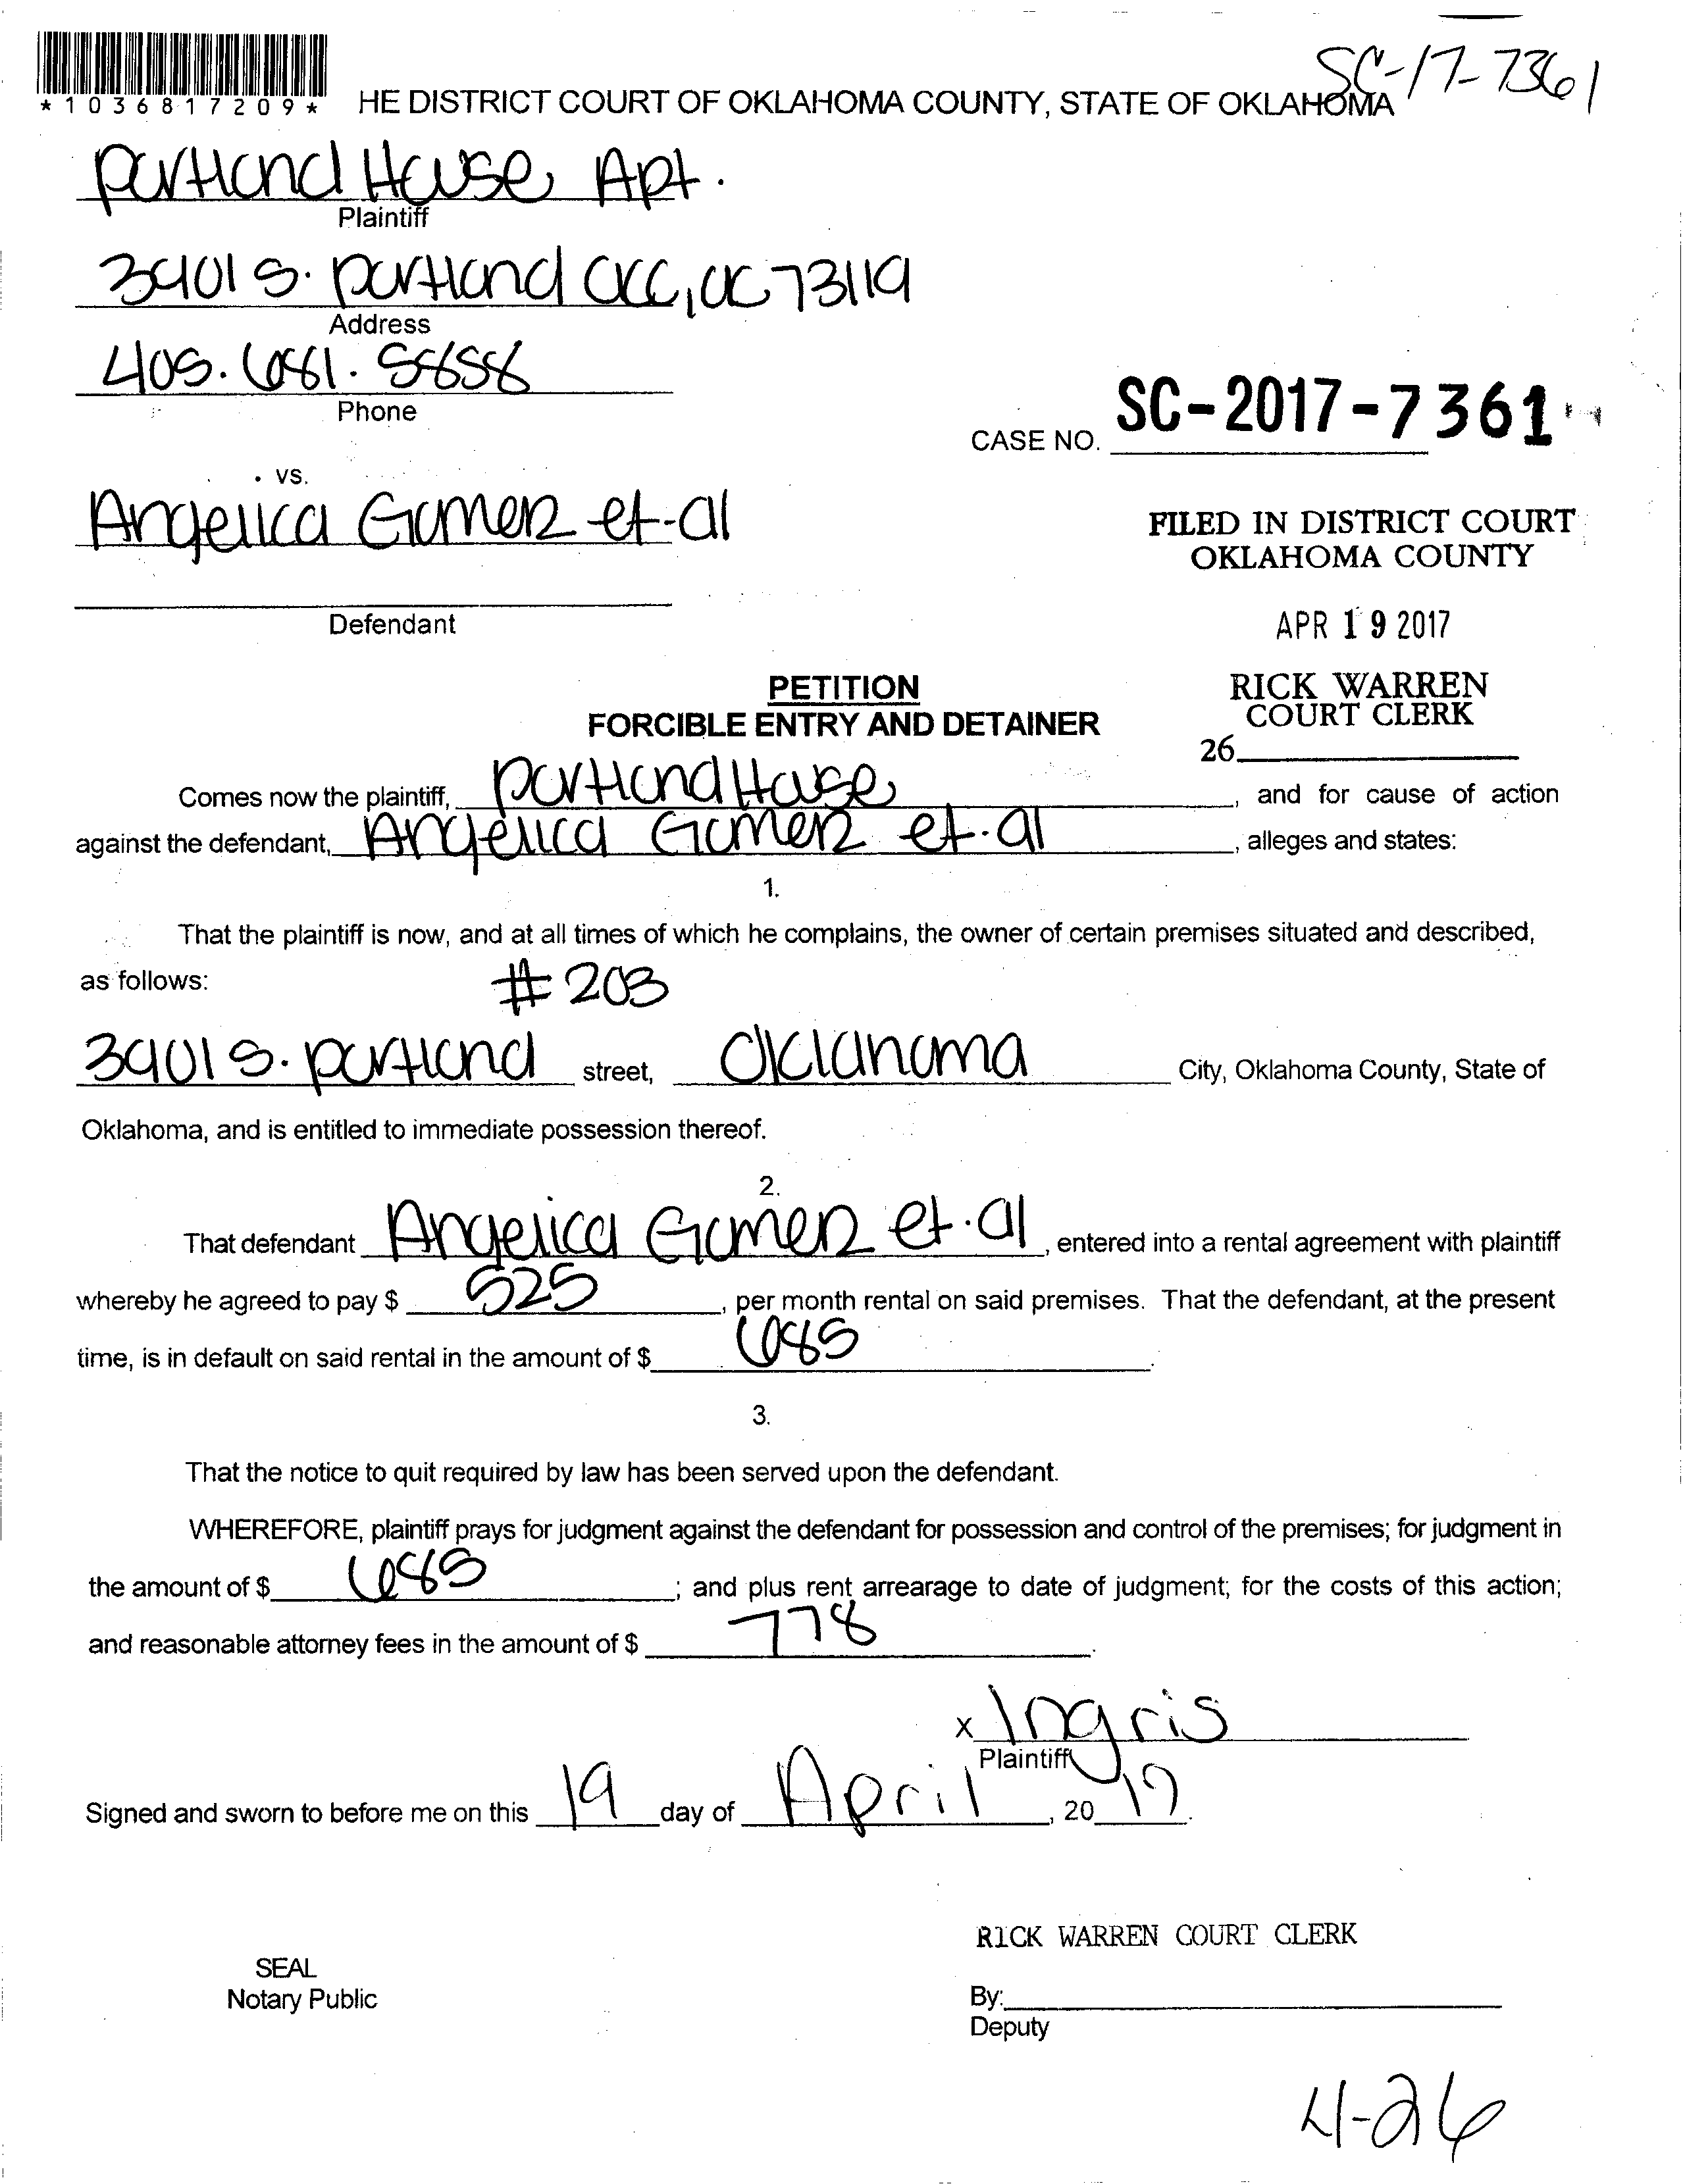 SC-17-7361
*1036817209* HE DISTRICT COURT OF OKLAHOMA COUNTY, STATE OF OKLAHOMA
Portland House Apt.
Plaintiff
3901 S. Portland OKC, OK 73119
Address
405.681.5858
Phone
CASE NO. SC-2017-7361
vs.
Angelica Gamez et-al
Defendant
FILED IN DISTRICT COURT
OKLAHOMA COUNTY
APR 19 2017
RICK WARREN
COURT CLERK
26
PETITION
FORCIBLE ENTRY AND DETAINER
Comes now the plaintiff, Portland House, and for cause of action
against the defendant, Angelica Gamez et.al, alleges and states:
1.
That the plaintiff is now, and at all times of which he complains, the owner of certain premises situated and described,
as follows: #203
3901 S. Portland street, Oklahoma City, Oklahoma County, State of
Oklahoma, and is entitled to immediate possession thereof.
2.
That defendant Angelica Gamez et.al, entered into a rental agreement with plaintiff
whereby he agreed to pay $ 525, per month rental on said premises. That the defendant, at the present
time, is in default on said rental in the amount of $ 685.
3.
That the notice to quit required by law has been served upon the defendant.
WHEREFORE, plaintiff prays for judgment against the defendant for possession and control of the premises; for judgment in
the amount of $ 685; and plus rent arrearage to date of judgment; for the costs of this action;
and reasonable attorney fees in the amount of $ 778.
x Ingris
Plaintiff
Signed and sworn to before me on this 19 day of April, 2017.
RICK WARREN COURT CLERK
SEAL
Notary Public
By:
Deputy
4-26